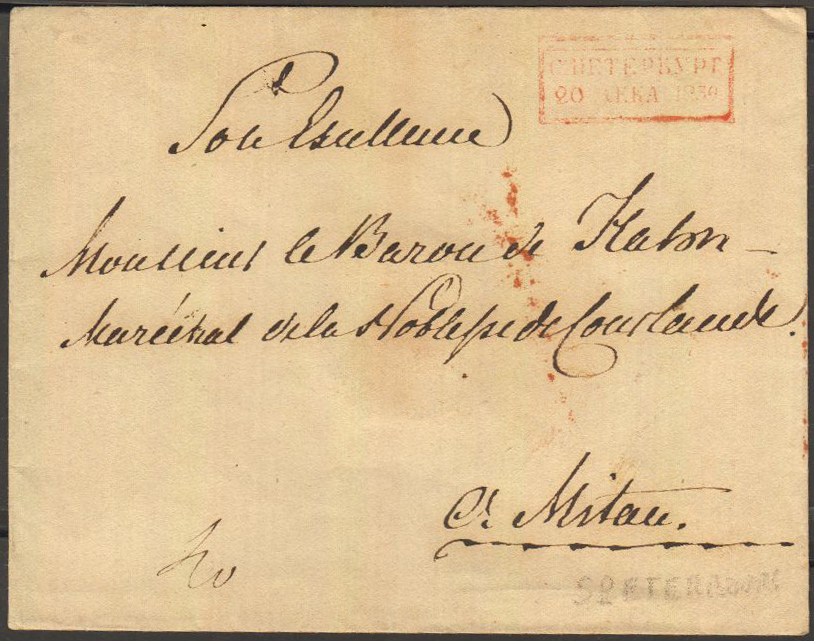 С.ПЕТЕРБУРГ
20 ДЕКА 1830
Son Excellence
Monsieur le Baron de Hahn
Maréchal de la Noblesse de Courlande.
à Mitau.